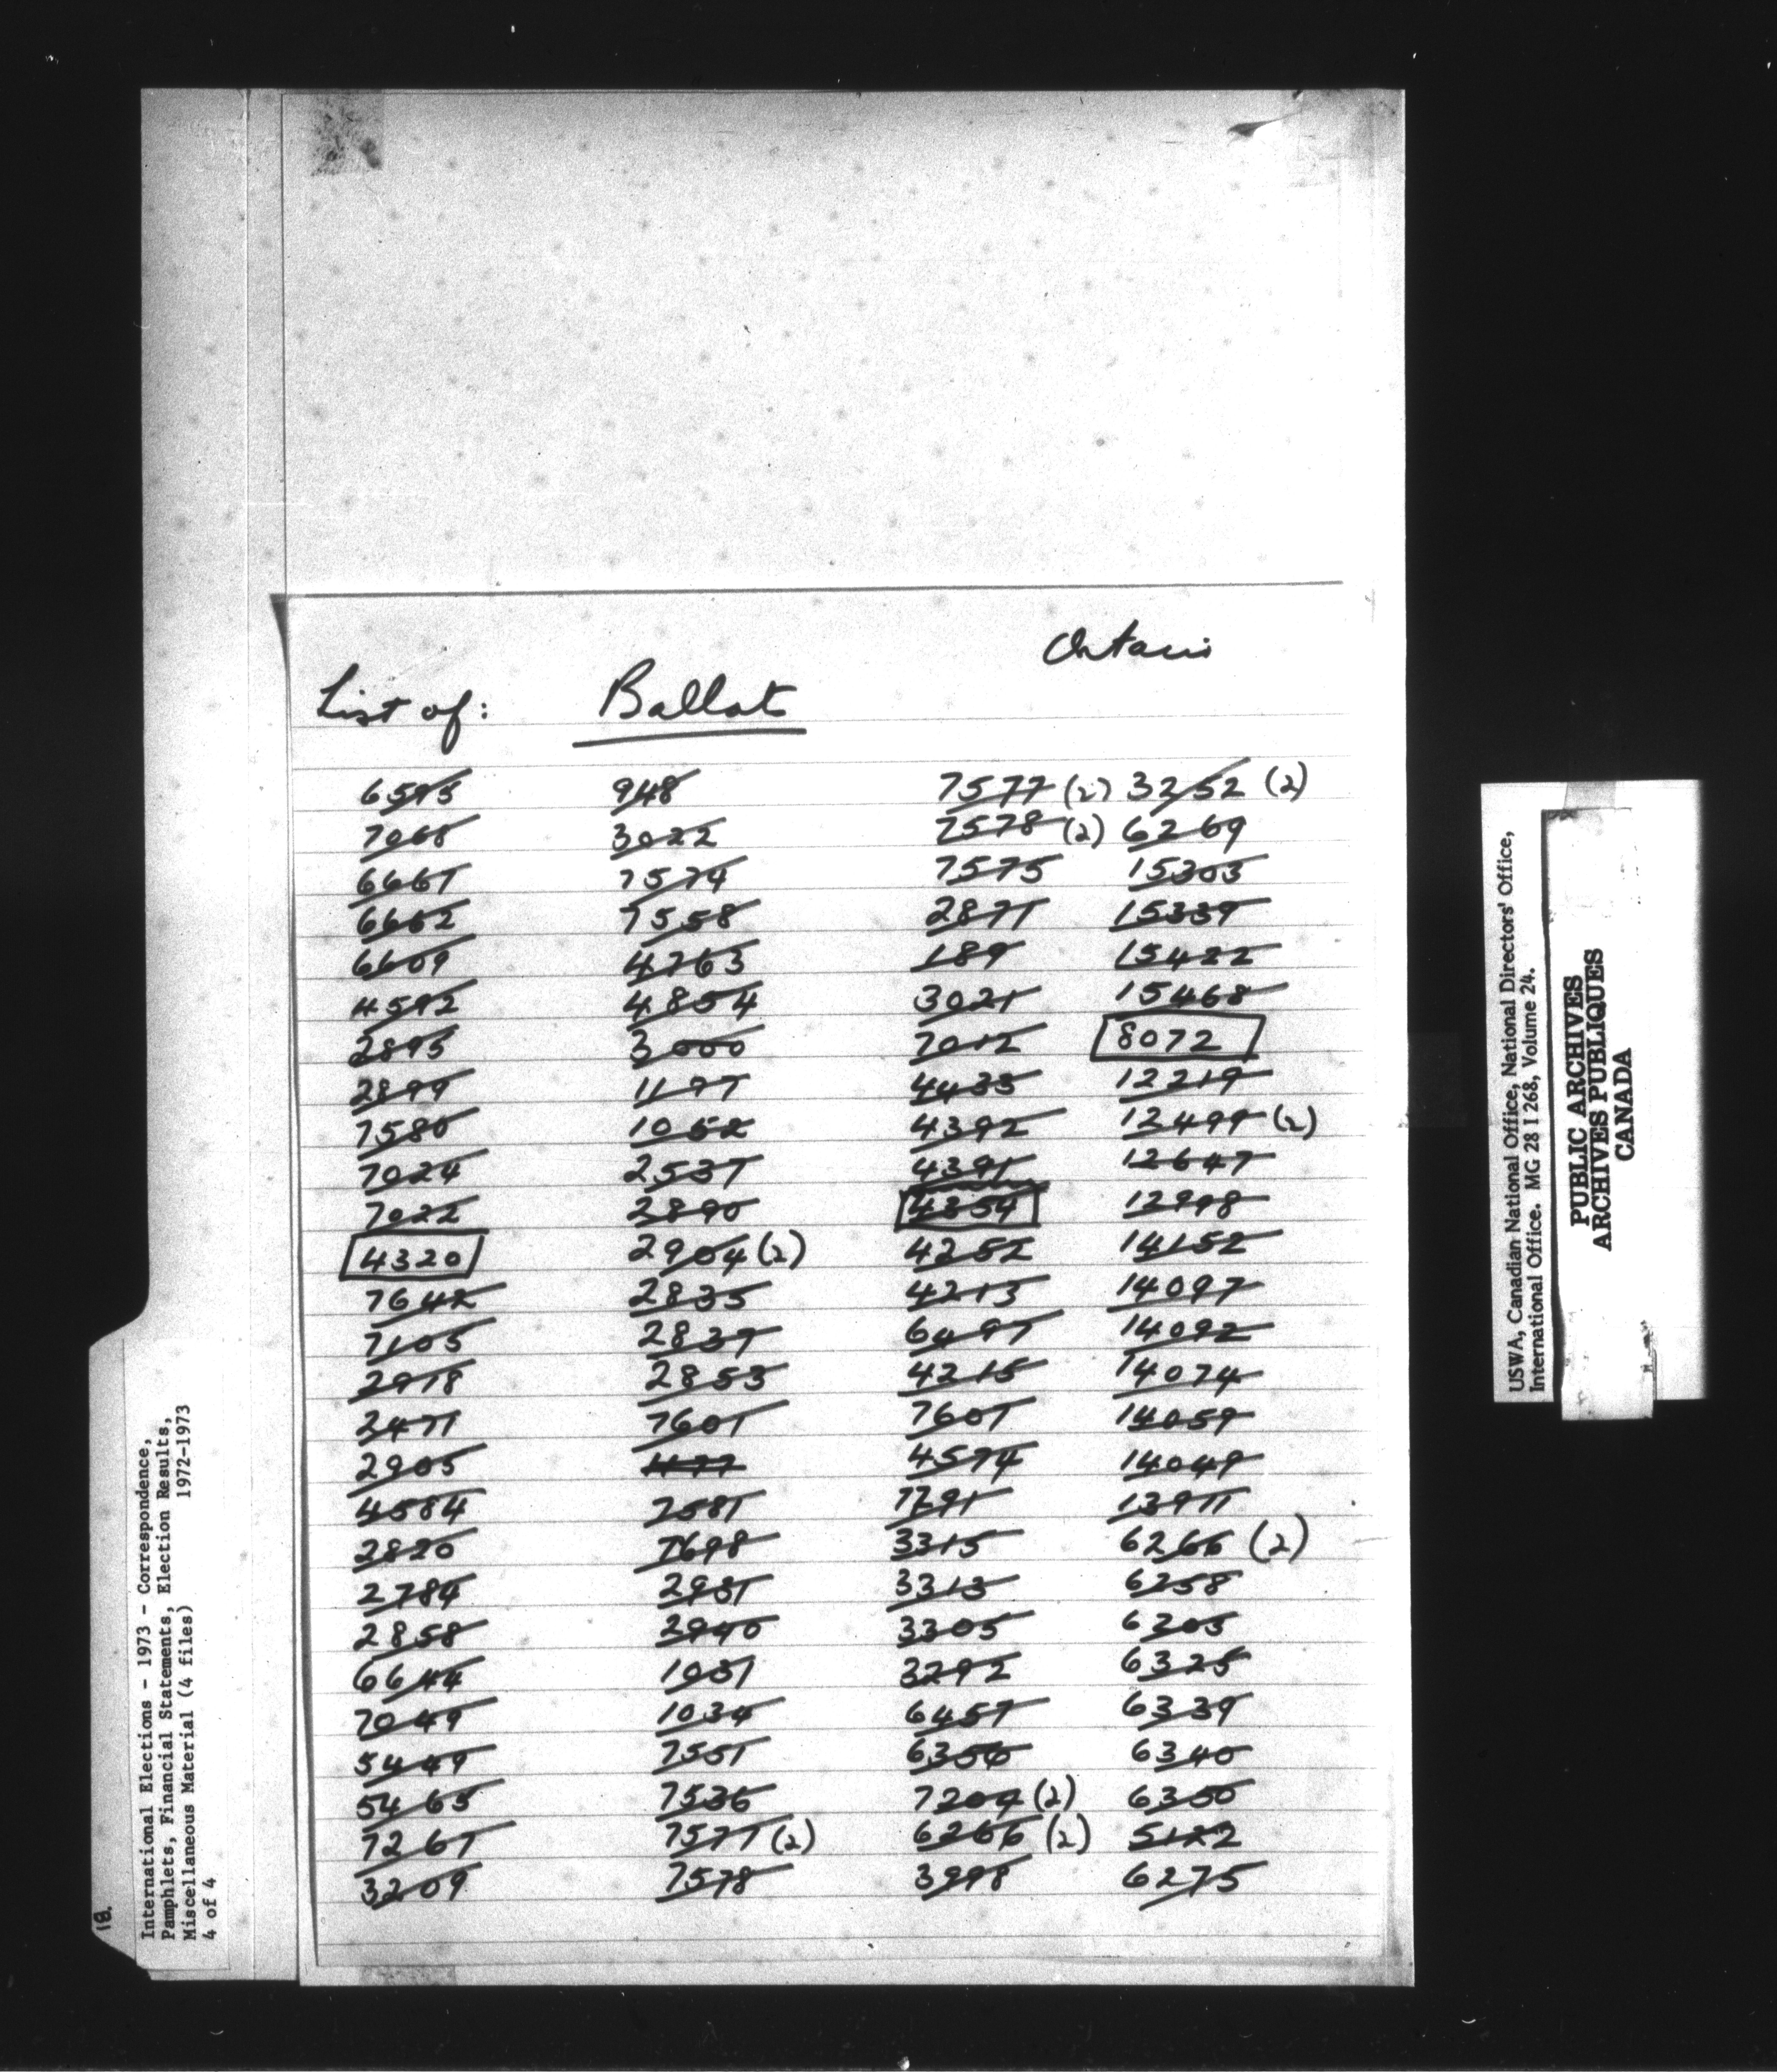 Ontario
List of: Ballots
6593 948 7577 (2) 3252 (2)
7068 3022 7578 (2) 6269
6661 7574 7575 15303
6662 7558 2871 15339
6609 4763 189 15422
4592 4854 3021 15468
2893 3000 7012 8072
2899 1197 4433 12219
7580 1052 4392 12499 (2)
7024 2537 4391 12647
7022 2890 4354 12998
4320 2904 (2) 4252 14152
7642 2835 4213 14097
7105 2837 6497 14092
2918 2853 4215 14074
2471 7601 7601 14059
2905 4574 14049
4584 7581 7291 13971
2820 7698 3315 6266 (2)
2784 2931 3313 6258
2858 2940 3305 6305
6644 1031 3292 6325
7049 1034 6457 6339
5449 7551 6356 6340
5465 7536 7204 (2) 6350
7261 7577 (2) 6266 (2) 5122
3209 7578 3998 6275
18.
International Elections - 1973 - Correspondence,
Pamphlets, Financial Statements, Election Results,
Miscellaneous Material (4 files) 1972-1973
4 of 4
USWA, Canadian National Office, National Directors' Office,
International Office. MG 28 I 268, Volume 24.
PUBLIC ARCHIVES
ARCHIVES PUBLIQUES
CANADA